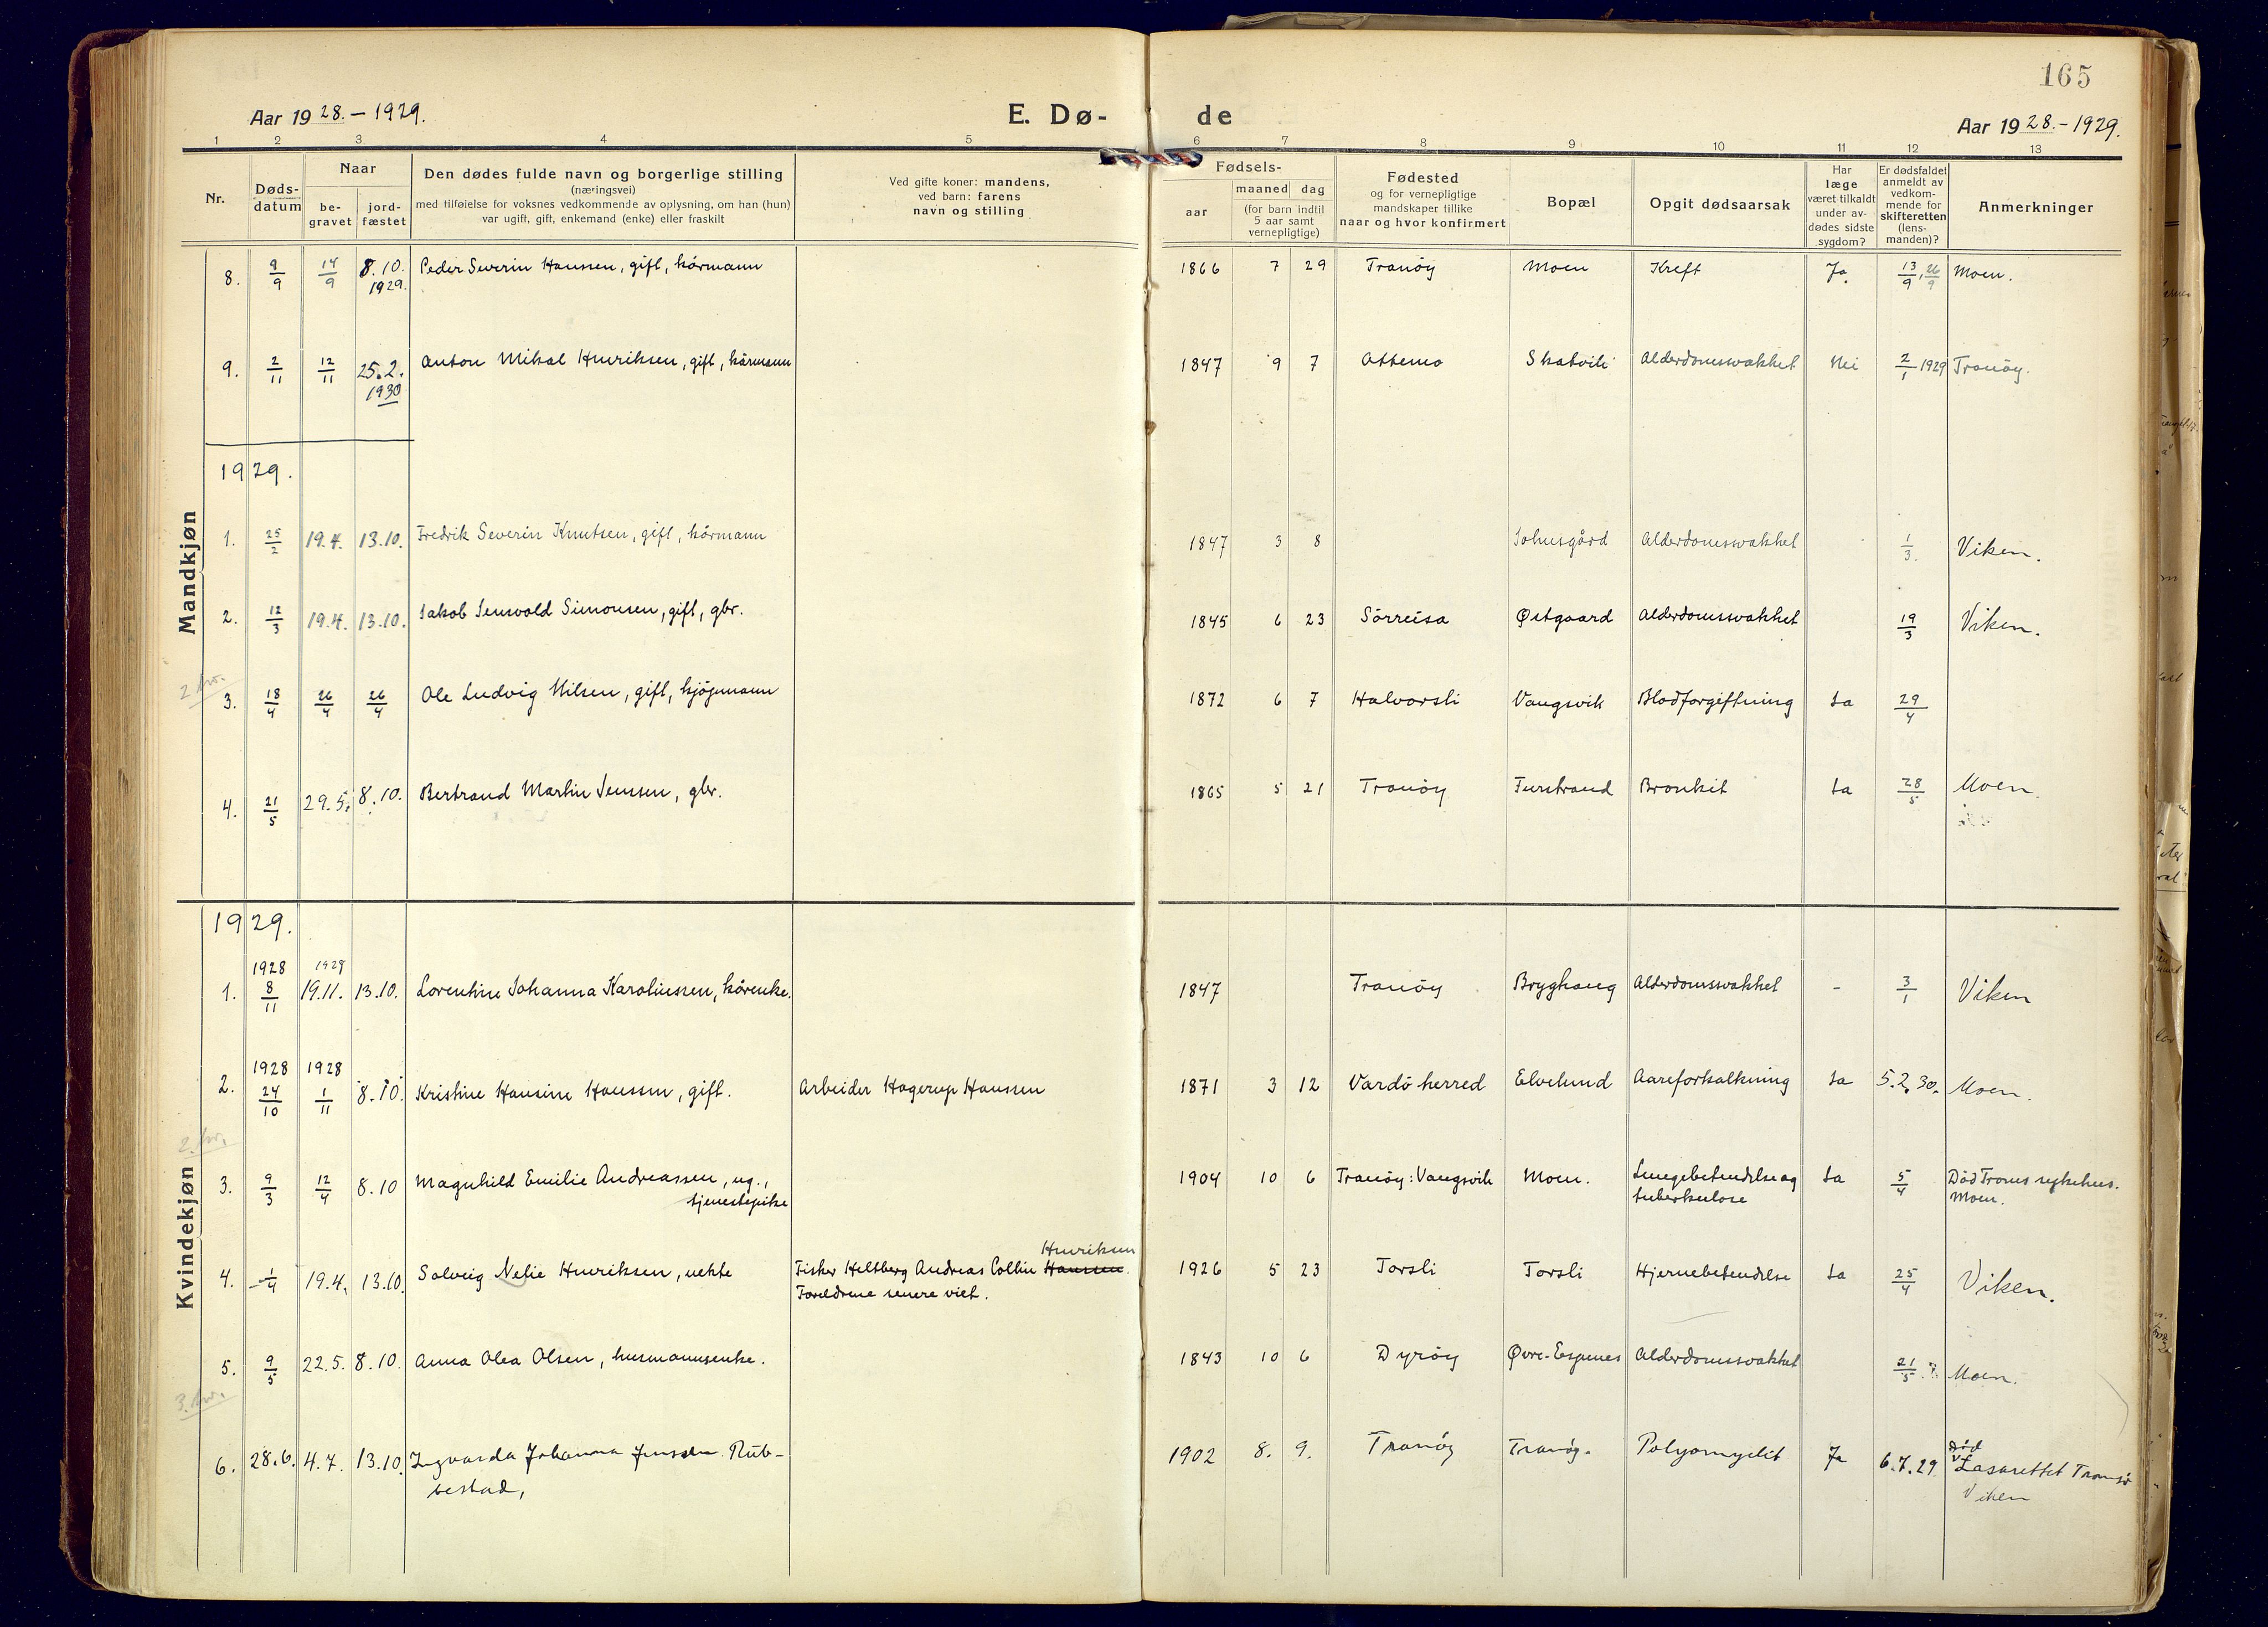 165
Aar 19 28. – 1929.
E. Dø-
de
Aar 19 28. – 1929.
1 2 3 4 5 6 7 8 9 10 11 12 13
Nr.
Døds-
datum
Naar
be-
gravet
jord-
fæstet
Den dødes fulde navn og borgerlige stilling
(næringsvei)
med tilføielse for voksnes vedkommende av oplysning, om han (hun)
var ugift, gift, enkemand (enke) eller fraskilt
Ved gifte koner: mandens,
ved barn: farens
navn og stilling
Fødsels-
aar
maaned dag
(for barn indtil
5 aar samt
vernepligtige)
Fødested
og for vernepligtige
mandskaper tillike
naar og hvor konfirmert
Bopæl
Opgit dødsaarsak
Har
læge
været tilkaldt
under av-
dødes sidste
sygdom?
Er dødsfaldet
anmeldt av
vedkom-
mende for
skifteretten
(lens-
manden)?
Anmerkninger
Mandkjøn
8. 9/9 14/9 8.10. 1929. Peder Severin Hanssen, gift, kårmann 1866 7 29 Tranöy Moen Kreft Ja 13/9, 26/9 Moen.
9. 2/11 12/11 25.2. 1930 Anton Mikal Henriksen, gift, kårmann 1847 9 7 Skatvik Alderdomssvakhet Nei 2/1 1929 Tranöy.
1929.
1. 25/2 19.4. 13.10. Fredrik Severin Knutsen, gift, kårmann 1847 3 8 Johusgård Alderdomssvakhet 1/3. Viken.
2. 12/3 19.4. 13.10. Jakob Jensvold Simonsen, gift, gbr. 1845 6 23 Sörreisa Østgaard Alderdomssvakhet 19/3 Viken.
2 kv.
3. 18/4 26/4 26/4 Ole Ludvig Nilsen, gift, kjöpmann 1872 6 7 Halvorsli Vangsvik Blodforgiftning Ja 29/4
4. 21/5 29.5. 8.10. Bertrand Martin Jensen, gbr. 1865 5 21 Tranöy Furstrand Bronkit Ja 28/5 Moen.
Kvindekjøn
1929.
1. 1928 8/11 1928 19.11. 13.10. Lorentine Johanna Karoliussen, kårenke. 1847 Tranöy Bryghaug Alderdomssvakhet - 3/1 Viken
2. 1928 24/10 1928 1/11 8.10. Kristine Hansine Hanssen, gift. Arbeider Hagerup Hanssen 1871 3 12 Vardö herred Elvelund Aareforkalkning Ja 5.2.30. Moen.
2. kv.
3. 9/3 12/4 8.10 Magnhild Emilie Andreassen, ug.,
tjenestepike 1904 10 6 Tranöy: Vangsvik Moen. Lungebetendelse og
tuberkulose Ja 5/4 Död Troms sykehus.
Moen.
4. 1/4 19.4. 13.10. Solveig Nelie Henriksen, uekte Fisker Heltberg Andreas Collin Hanssen Henriksen
Foreldrene senere viet. 1926 5 23 Torsli Torsli Hjernebetendelse Ja 25/4 Viken.
5. 9/5 22.5. 8.10. Anna Olea Olsen, husmannsenke. 1843 10 6 Dyröy Øvre-Espenes Alderdomssvakhet 21/5 Moen.
3. kv.
6. 28.6. 4.7. 13.10. Ingvarda Johanna Jenssen Rub-
bestad, 1902 8. 9. Tranöy Tranöy. Polyomyelit Ja 6.7.29 död
v/ Lasarettet Tromsö
Viken